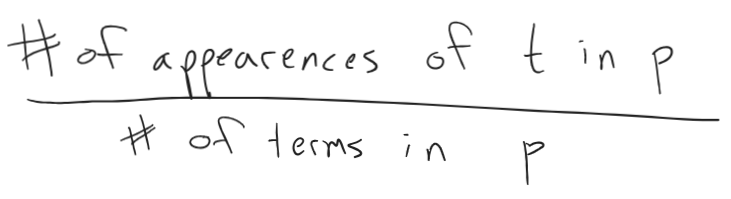 # of appearences of t in p
# of terms in p